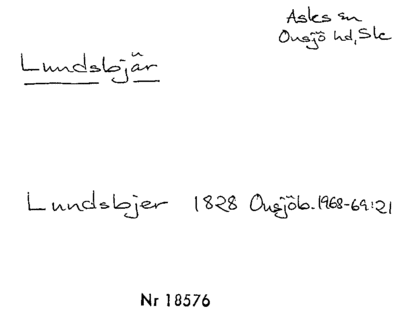 Asks sn
Onsjö hd, Sk
Lundsbjär
Lundsbjer 1828 Onsjöb. 1968-69:21
Nr 18576